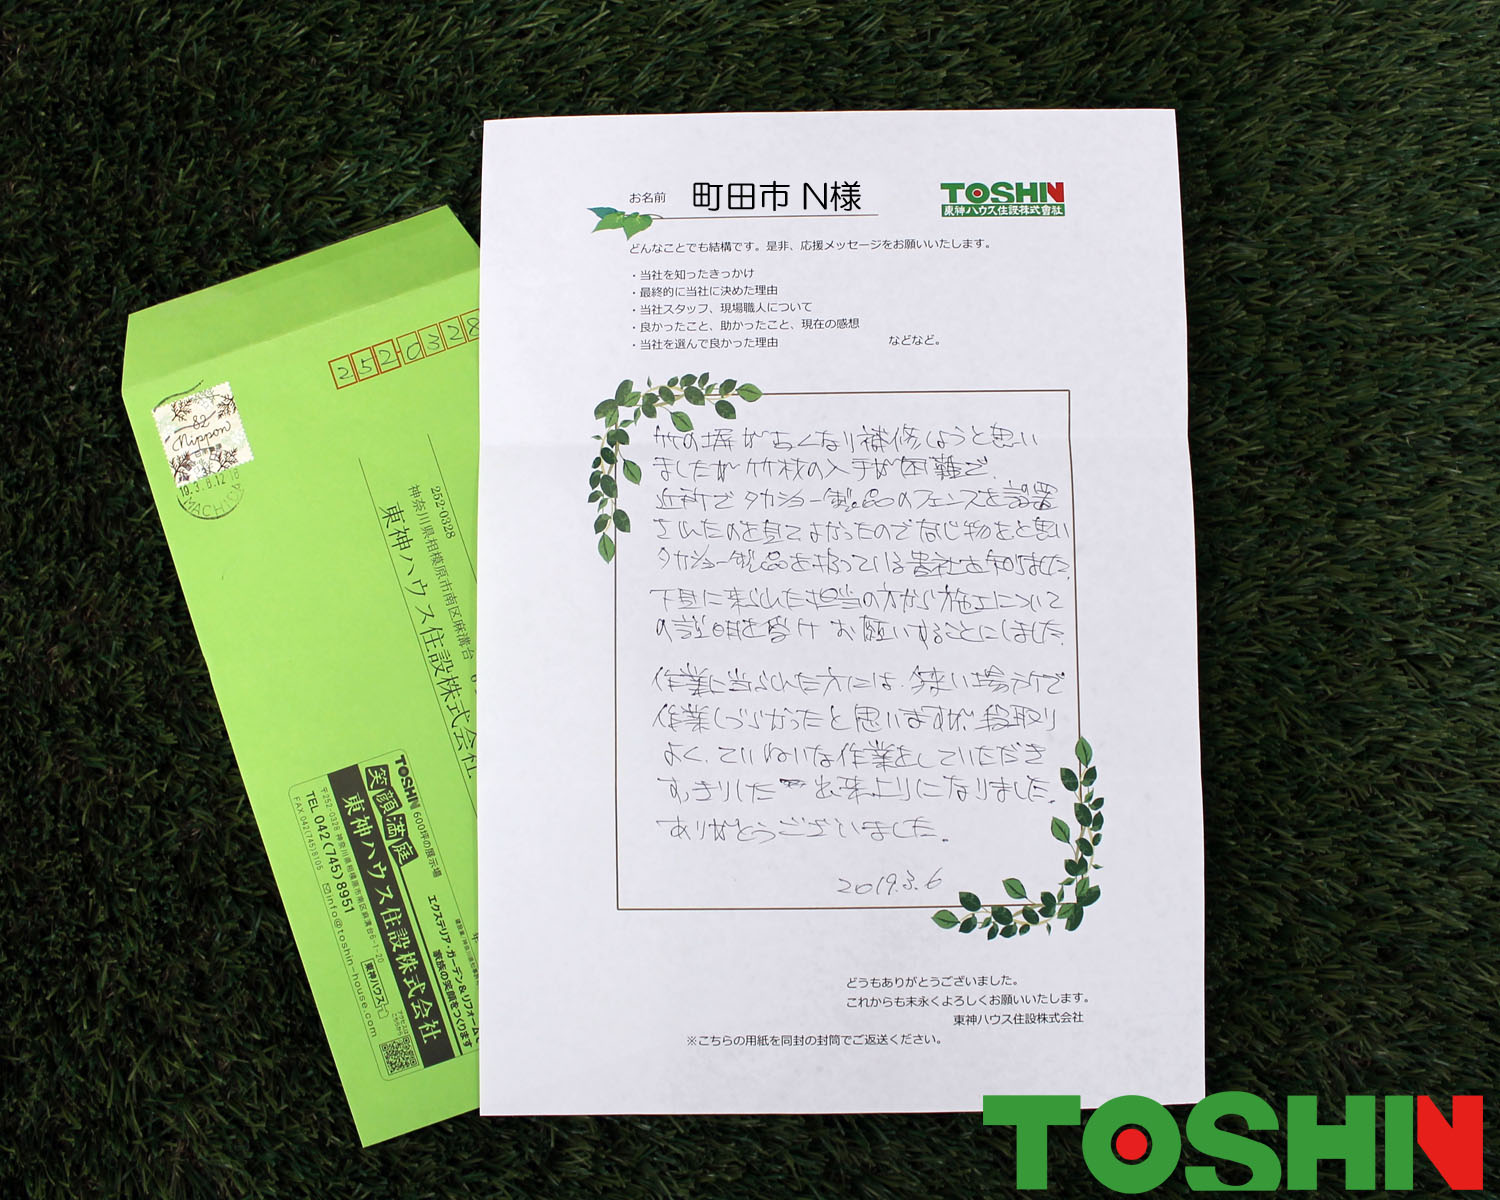 お名前 町田市 N様
TOSHIN
東神ハウス住設株式会社
どんなことでも結構です。是非、応援メッセージをお願いいたします。
・当社を知ったきっかけ
・最終的に当社に決めた理由
・当社スタッフ、現場職人について
・良かったこと、助かったこと、現在の感想
・当社を選んで良かった理由 などなど。
竹の塀が古くなり補修しようと思い
ましたが竹枝の入手が困難で、
近所でタカショー製品のフェンスを設置
されたのを見てよかったので同じ物をと思い
タカショー製品を扱っている貴社を知りました。
下見に来られた担当の方から施工について
の説明を受けお願いすることにしました。
作業に当られた方には、狭い場所で
作業しづらかったと思いますが、段取り
よく、ていねいな作業をしていただき
すっきりした出来上りになりました。
ありがとうございました。
2019.3.6
どうもありがとうございました。
これからも末永くよろしくお願いいたします。
東神ハウス住設株式会社
※こちらの用紙を同封の封筒でご返送ください。
2520328
82
Nippon
19.3.6.12-18
MACHIDA
252-0328
神奈川県相模原市南区麻溝台
東神ハウス住設株式会社
TOSHIN 600坪の展示場
笑顔満庭
エクステリア・ガーデン&リフォームで
家族の笑顔をつくります
東神ハウス住設株式会社
〒252-0328 神奈川県相模原市南区麻溝台6-1-20
TEL 042(745)8951
FAX 042(745)8105
info@toshin-house.com
東神ハウス
アクセスは
こちらから
TOSHIN